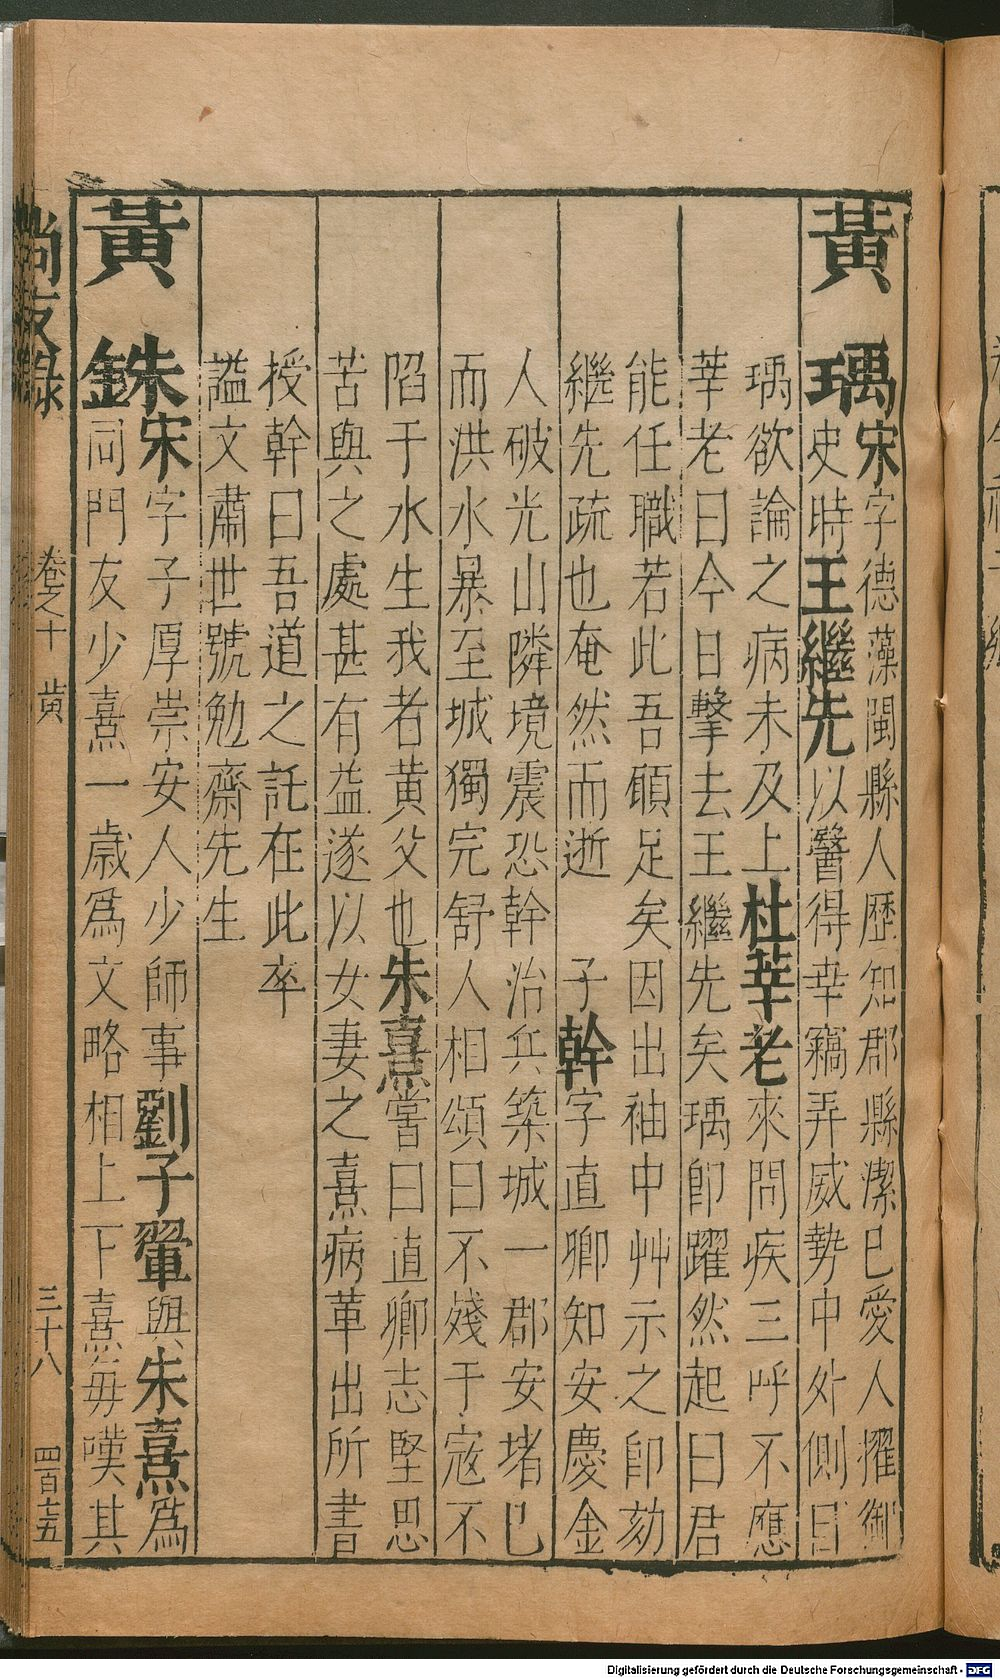 黃瑀宋字德藻閩縣人歷知郡縣潔已愛人擢御
史時王繼先以醫得幸竊弄威勢中外側目
瑀欲論之病未及上杜莘老來問疾三呼不應
莘老曰今日擊去王繼先矣瑀卽躍然起曰君
能任職若此吾願足矣因出袖中艸示之卽劾
繼先疏也奄然而逝 子幹字直卿知安慶金
人破光山隣境震恐幹治兵築城一郡安堵巳
而洪水暴至城獨完舒人相頌曰不殘于寇不
陷于水生我者黃父也朱熹嘗曰直卿志堅思
苦與之處甚有益遂以女妻之熹病革出所書
授幹曰吾道之託在此卒
謚文肅世號勉齋先生
黃銖宋字子厚崇安人少師事劉子翬與朱熹為
同門友少熹一歲為文略相上下熹每嘆其
尚友錄
卷之十 黃
三十八
四百七五
Digitalisierung gefördert durch die Deutsche Forschungsgemeinschaft - DFG